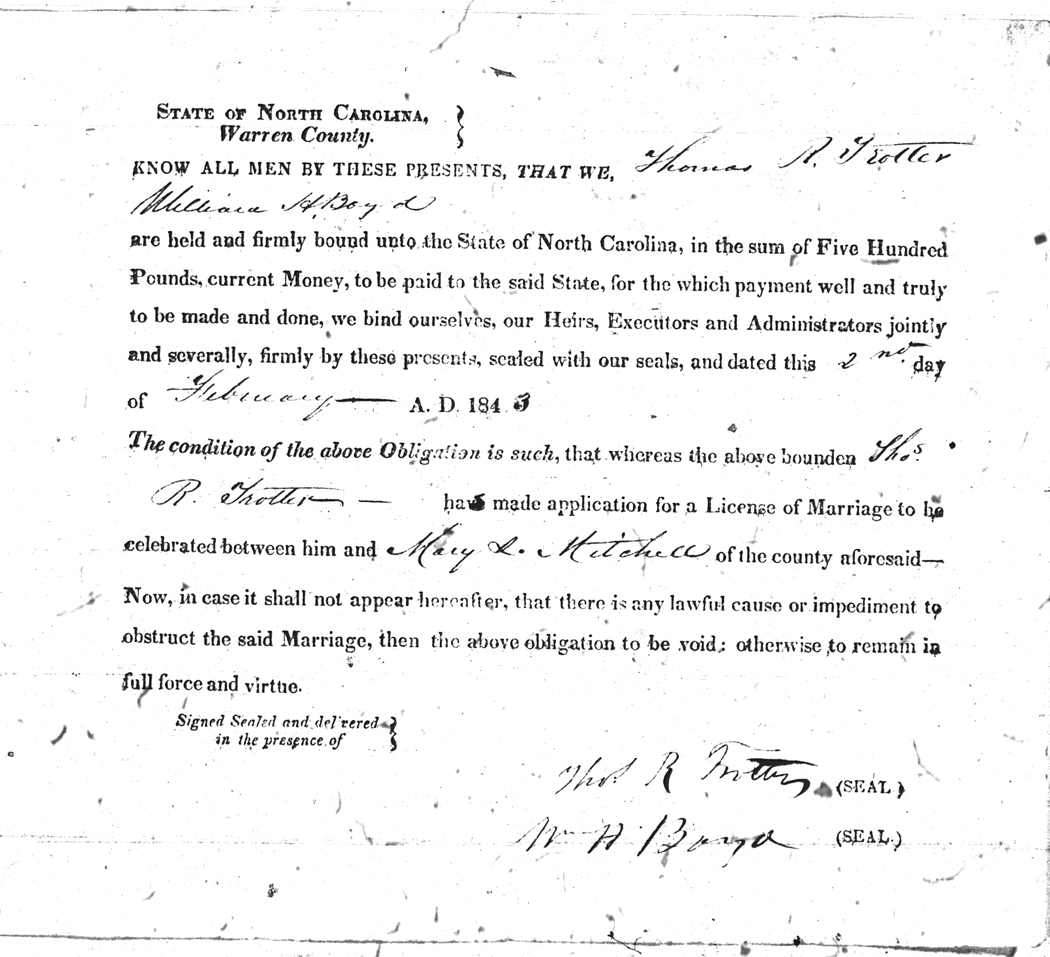 STATE OF NORTH CAROLINA,
Warren County.
KNOW ALL MEN BY THESE PRESENTS, THAT WE, Thomas R. Trotter
William H. Boyd
are held and firmly bound unto the State of North Carolina, in the sum of Five Hundred
Pounds, current Money, to be paid to the said State, for the which payment well and truly
to be made and done, we bind ourselves, our Heirs, Executors and Administrators jointly
and severally, firmly by these presents, sealed with our seals, and dated this 2nd. day
of February A. D. 1843
The condition of the above Obligation is such, that whereas the above bounden Thos.
R. Trotter — has made application for a License of Marriage to be
celebrated between him and Mary L. Mitchell of the county aforesaid—
Now, in case it shall not appear hereafter, that there is any lawful cause or impediment to
obstruct the said Marriage, then the above obligation to be void: otherwise to remain in
full force and virtue.
Signed Sealed and delivered
in the presence of
Thos R Trotter (SEAL)
Wm H Boyd (SEAL.)